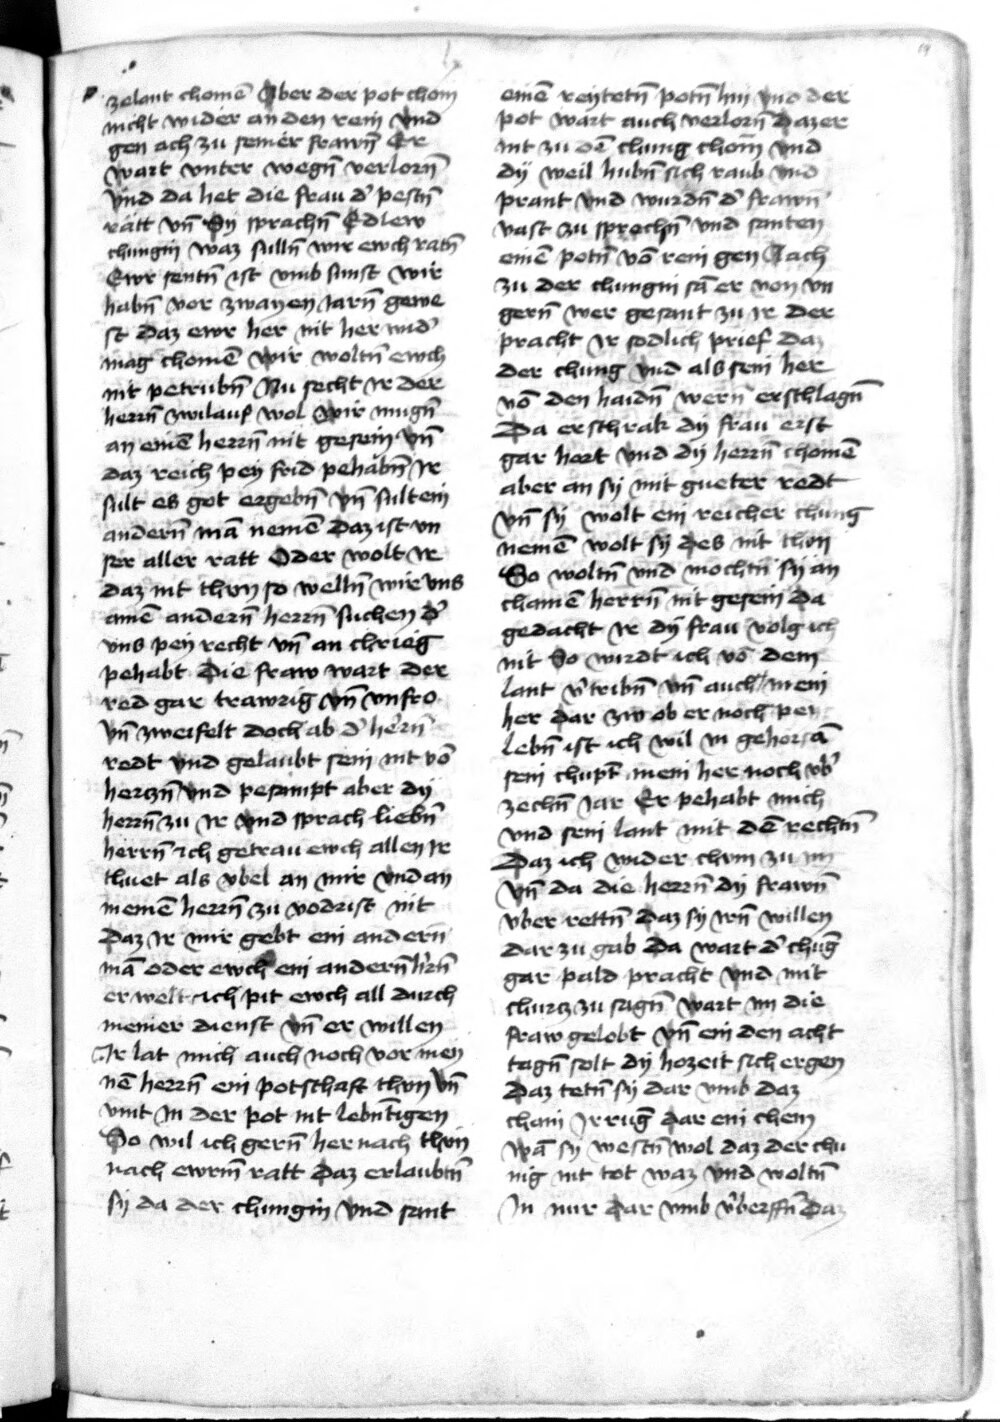 zelant chomē Aber der pot chom
nicht wider an den rein vnd
gen ach zu seiner frawn̄ Er
wart vnter wegn̄ verlorn̄
vnd da het die frau d' pestn̄
rätt vn̄ Sy sprachn̄ Edlew
chungin waz sulln̄ wir ewch ratn̄
Ewr sentn̄ ist vmb sunst wir
habn̄ vor zwayen iarn̄ gewe
st daz ewr her nit her wid'
mag chomē wir woltn̄ ewch
nit petrubn̄ Nu secht Ir der
herrn̄ zwilauf wol wir mugn̄
an einē herrn̄ nit gesein vn̄
daz reich pey frid pehabn̄ Ir
sult es got ergebn̄ vn̄ sult ein
andern̄ mā nemē Daz ist vn
ser aller ratt Oder wolt Ir
daz nit thon so welln̄ wir vns
ainē andern̄ herrn̄ suchen d'
vns pey recht vn̄ an chrieg
pehabt Die fraw wart der
red gar trawrig vn̄ vnfro
vn̄ zweifelt doch ab d' herrn̄
redt vnd gelaubt sein nit vō
herczn̄ vnd pesampt aber dy
herrn̄ zu Ir vnd sprach liebn̄
herrn̄ ich getrau ewch allen Ir
thuet als vbel an mir vnd an
meinē herrn̄ zu vodrist nit
Daz Ir mir gebt ein andern̄
mā oder ewch ein andern̄ h'rn̄
er welt ich pit ewch all durch
meiner dienst vn̄ er willen
Ir lat mich auch noch vor mey
nē herrn̄ ein potschaft thon vn̄
vint In der pot nit lebn̄tigen
So wil ich gern̄ her nach thon
nach ewrm̄ ratt Daz erlaubtn̄
sy da der chungin vnd sant
einē reytetn̄ potn̄ hin vnd der
pot wart auch verlorn̄ Daz er
nit zu dē chung chom̄ vnd
dy weil hubn̄ sich raub vnd
prant vnd wurdn̄ d' frawn̄
vast zu sprechn̄ vnd santen
einē potn̄ vō rein gen Aach
zu der chungin sā er von vn
gern̄ wer gesant zu Ir der
pracht Ir sodlich prief daz
der chung vnd als sein her
vō den haidn̄ wern̄ erschlagn̄
Da erschrak dy frau erst
gar hert vnd dy herrn̄ chomē
aber an sy mit gueter redt
vn̄ sy wolt ein reicher chung
nemē wolt sy des nit thon
So woltn̄ vnd mochtn̄ sy an
chainē herrn̄ nit gesein Da
gedacht Ir dy frau volg ich
nit So wirdt ich vō dem
lant v'tribn̄ vn̄ auch mein
her dar zw ob er noch pey
lebn̄ ist ich wil In gehorsā
sein chupt mein her noch vb'
zechn̄ Jar Er pehabt mich
vnd sein lant mit dē rechtn̄
Daz ich wider chum zu im
Vn̄ da die herrn̄ dy frawn̄
vber rettn̄ daz sy irn̄ willen
dar zu gab Da wart d' chūg
gar pald pracht vnd mit
churcz zu sagn̄ wart im die
fraw gelobt vn̄ ein den acht
tagn̄ solt dy hozeit sich ergen
Daz tetn̄ sy dar vmb daz
chain Irrūg dar ein chem
Wā sy westn̄ wol daz der chu
nig nit tot waz vnd woltn̄
In nur dar vmb v'berffn̄ Daz